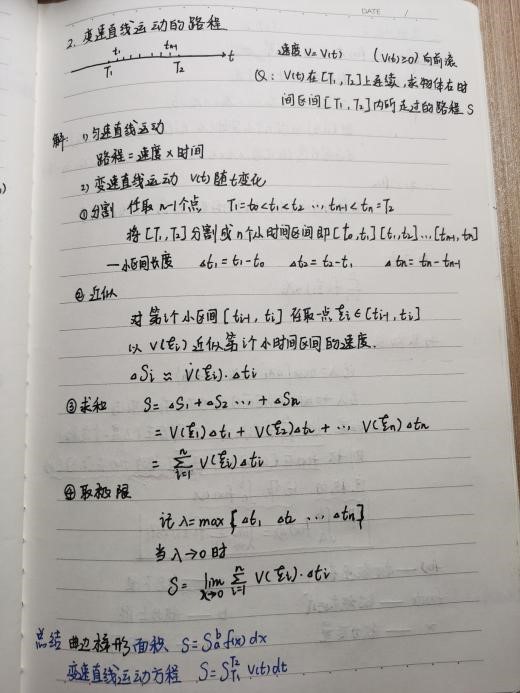 DATE /
2. 变速直线运动的路程
t₁ tₙ₋₁ t
T₁ T₂
速度 V=V(t) (V(t)≥0) 向前滚
Q: V(t)在[T₁,T₂]上连续,求物体在时
间区间[T₁,T₂]内所走过的路程S
解: 1) 匀速直线运动
路程=速度×时间
2) 变速直线运动 V(t)随t变化
①分割 任取n-1个点 T₁=t₀<t₁<t₂ …,tₙ₋₁<tₙ=T₂
将[T₁,T₂]分割成n个小时间区间即[t₀,t₁][t₁,t₂]…[tₙ₋₁,tₙ]
一小区间长度 Δt₁=t₁-t₀ Δt₂=t₂-t₁ Δtₙ=tₙ-tₙ₋₁
②近似
对第i个小区间[tᵢ₋₁,tᵢ]任取一点ξᵢ∈[tᵢ₋₁,tᵢ]
以V(ξᵢ)近似第i个小时间区间的速度.
ΔSᵢ≈V(ξᵢ)·Δtᵢ
③求和 S=ΔS₁+ΔS₂…,+ΔSₙ
=V(ξ₁)Δt₁+V(ξ₂)Δt₂+…V(ξₙ)Δtₙ
=∑ᵢ₌₁ⁿ V(ξᵢ)Δtᵢ
④取极限
记λ=max{Δt₁ Δt₂ …Δtₙ}
当λ→0时
S=lim_{λ→0} ∑ᵢ₌₁ⁿ V(ξᵢ)·Δtᵢ
总结 曲边梯形面积 S=∫ₐᵇf(x)dx
变速直线运动方程 S=∫_{T₁}^{T₂} V(t)dt